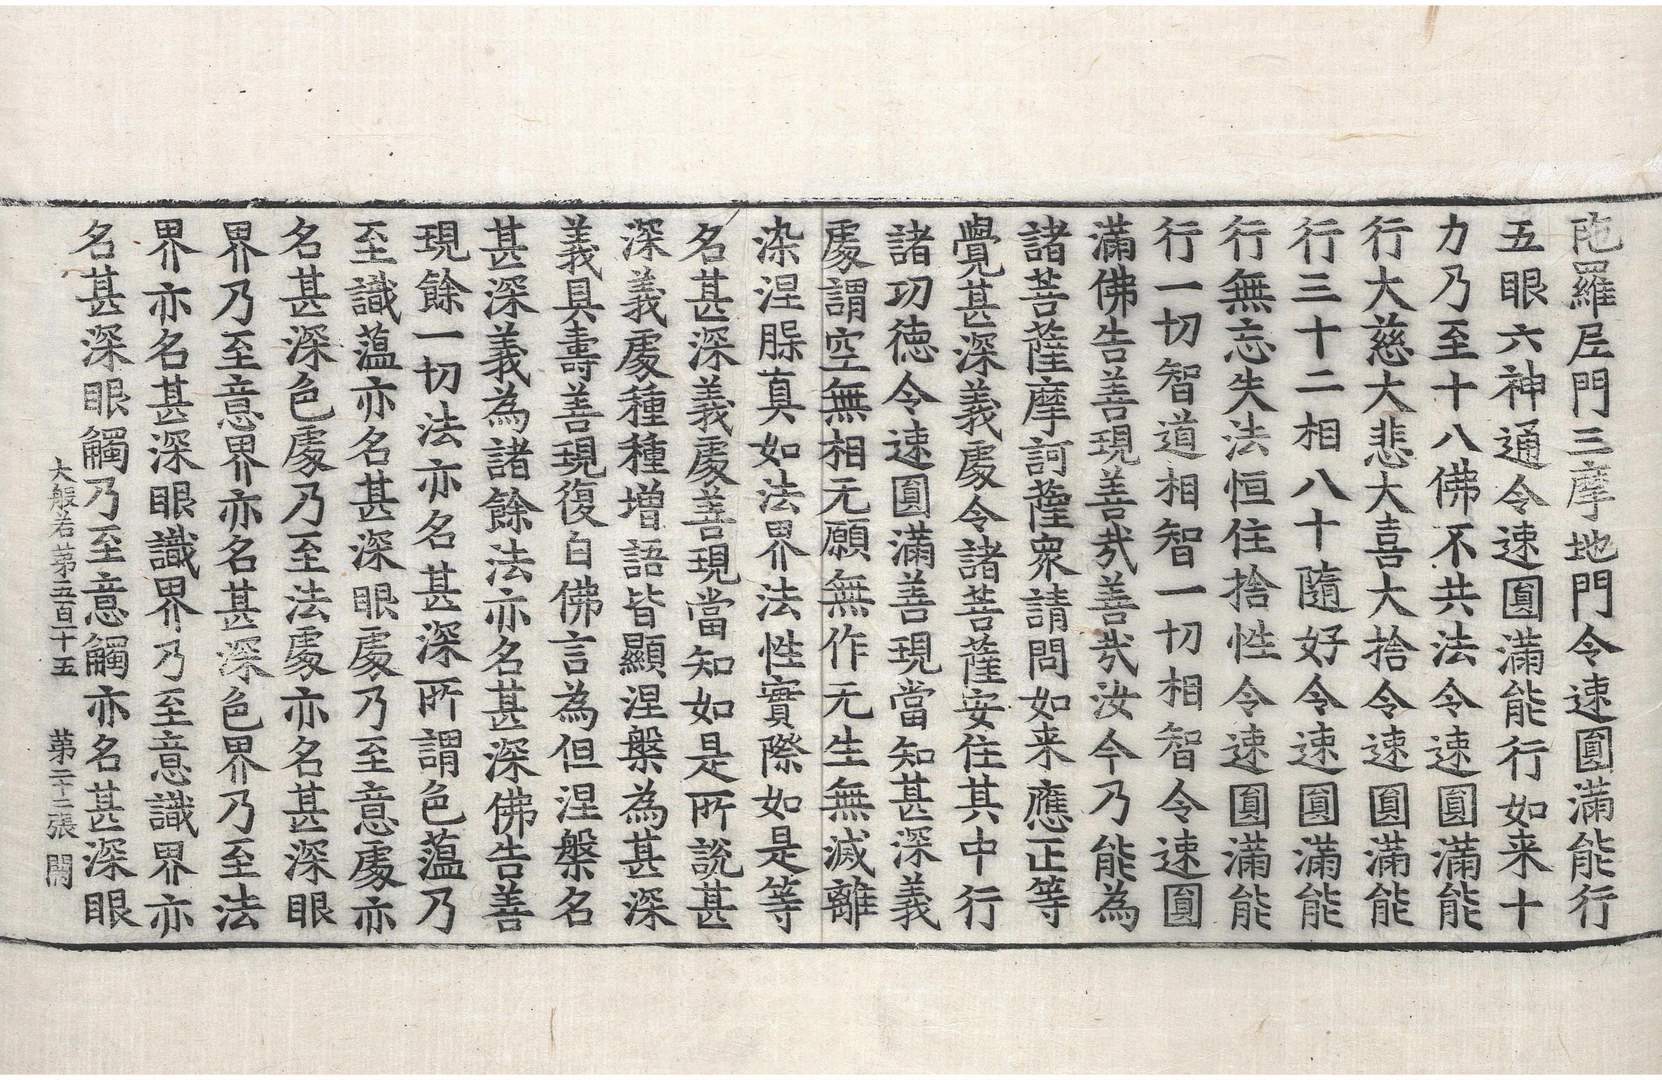 陁羅尼門三摩地門令速圓滿能行
五眼六神通令速圓滿能行如来十
力乃至十八佛不共法令速圓滿能
行大慈大悲大喜大捨令速圓滿能
行三十二相八十隨好令速圓滿能
行無忘失法恒住捨性令速圓滿能
行一切智道相智一切相智令速圓
滿佛告善現善㢤善㢤汝今乃能為
諸菩薩摩訶薩衆請問如来應正等
覺甚深義處令諸菩薩安住其中行
諸功德令速圓滿善現當知甚深義
處謂空無相无願無作无生無滅離
染涅脲真如法界法性實際如是等
名甚深義處善現當知如是所說甚
深義處種種增語皆顯涅槃為甚深
義具壽善現復白佛言為但涅槃名
甚深義為諸餘法亦名甚深佛告善
現餘一切法亦名甚深所謂色蘊乃
至識蘊亦名甚深眼處乃至意處亦
名甚深色處乃至法處亦名甚深眼
界乃至意界亦名甚深色界乃至法
界亦名甚深眼識界乃至意識界亦
名甚深眼觸乃至意觸亦名甚深眼
大般若第五百十五 第二十二張 闇